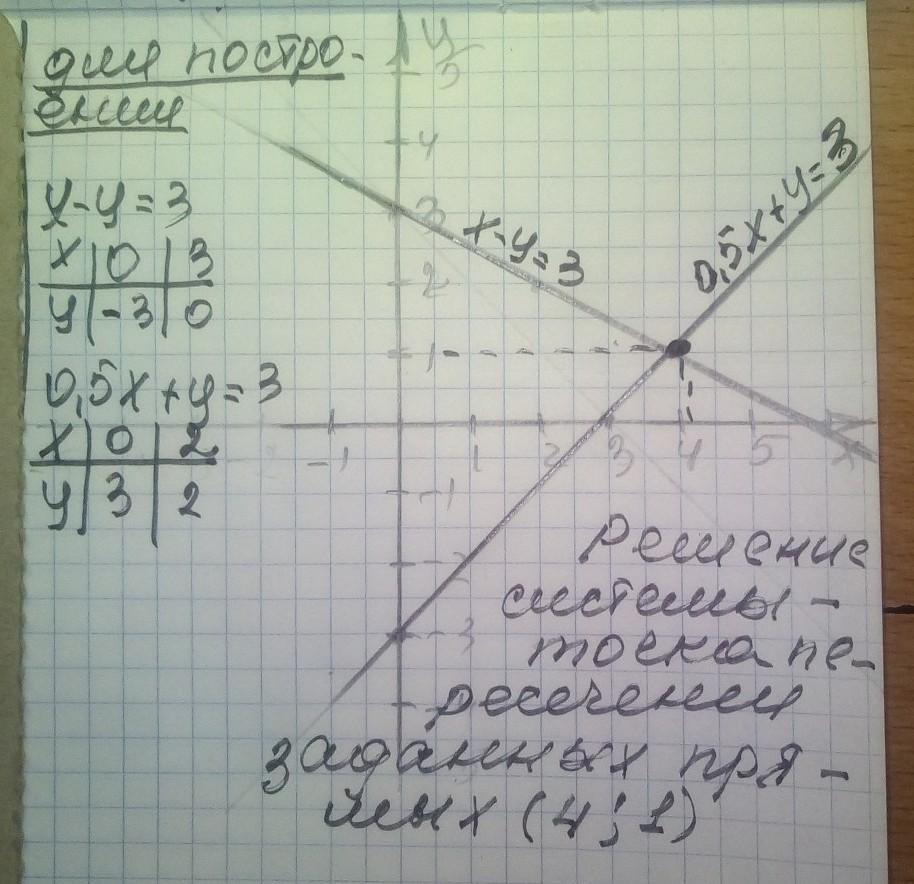 для постро-
ения
x-y=3
x 0 3
y -3 0
0,5x+y=3
x 0 2
y 3 2
y
5
4
3
2
1
-1 1 2 3 4 5 x
-1
-2
-3
x-y=3
0,5x+y=3
Решение
системы -
точка пе-
ресечения
заданных пря-
мых (4;1)